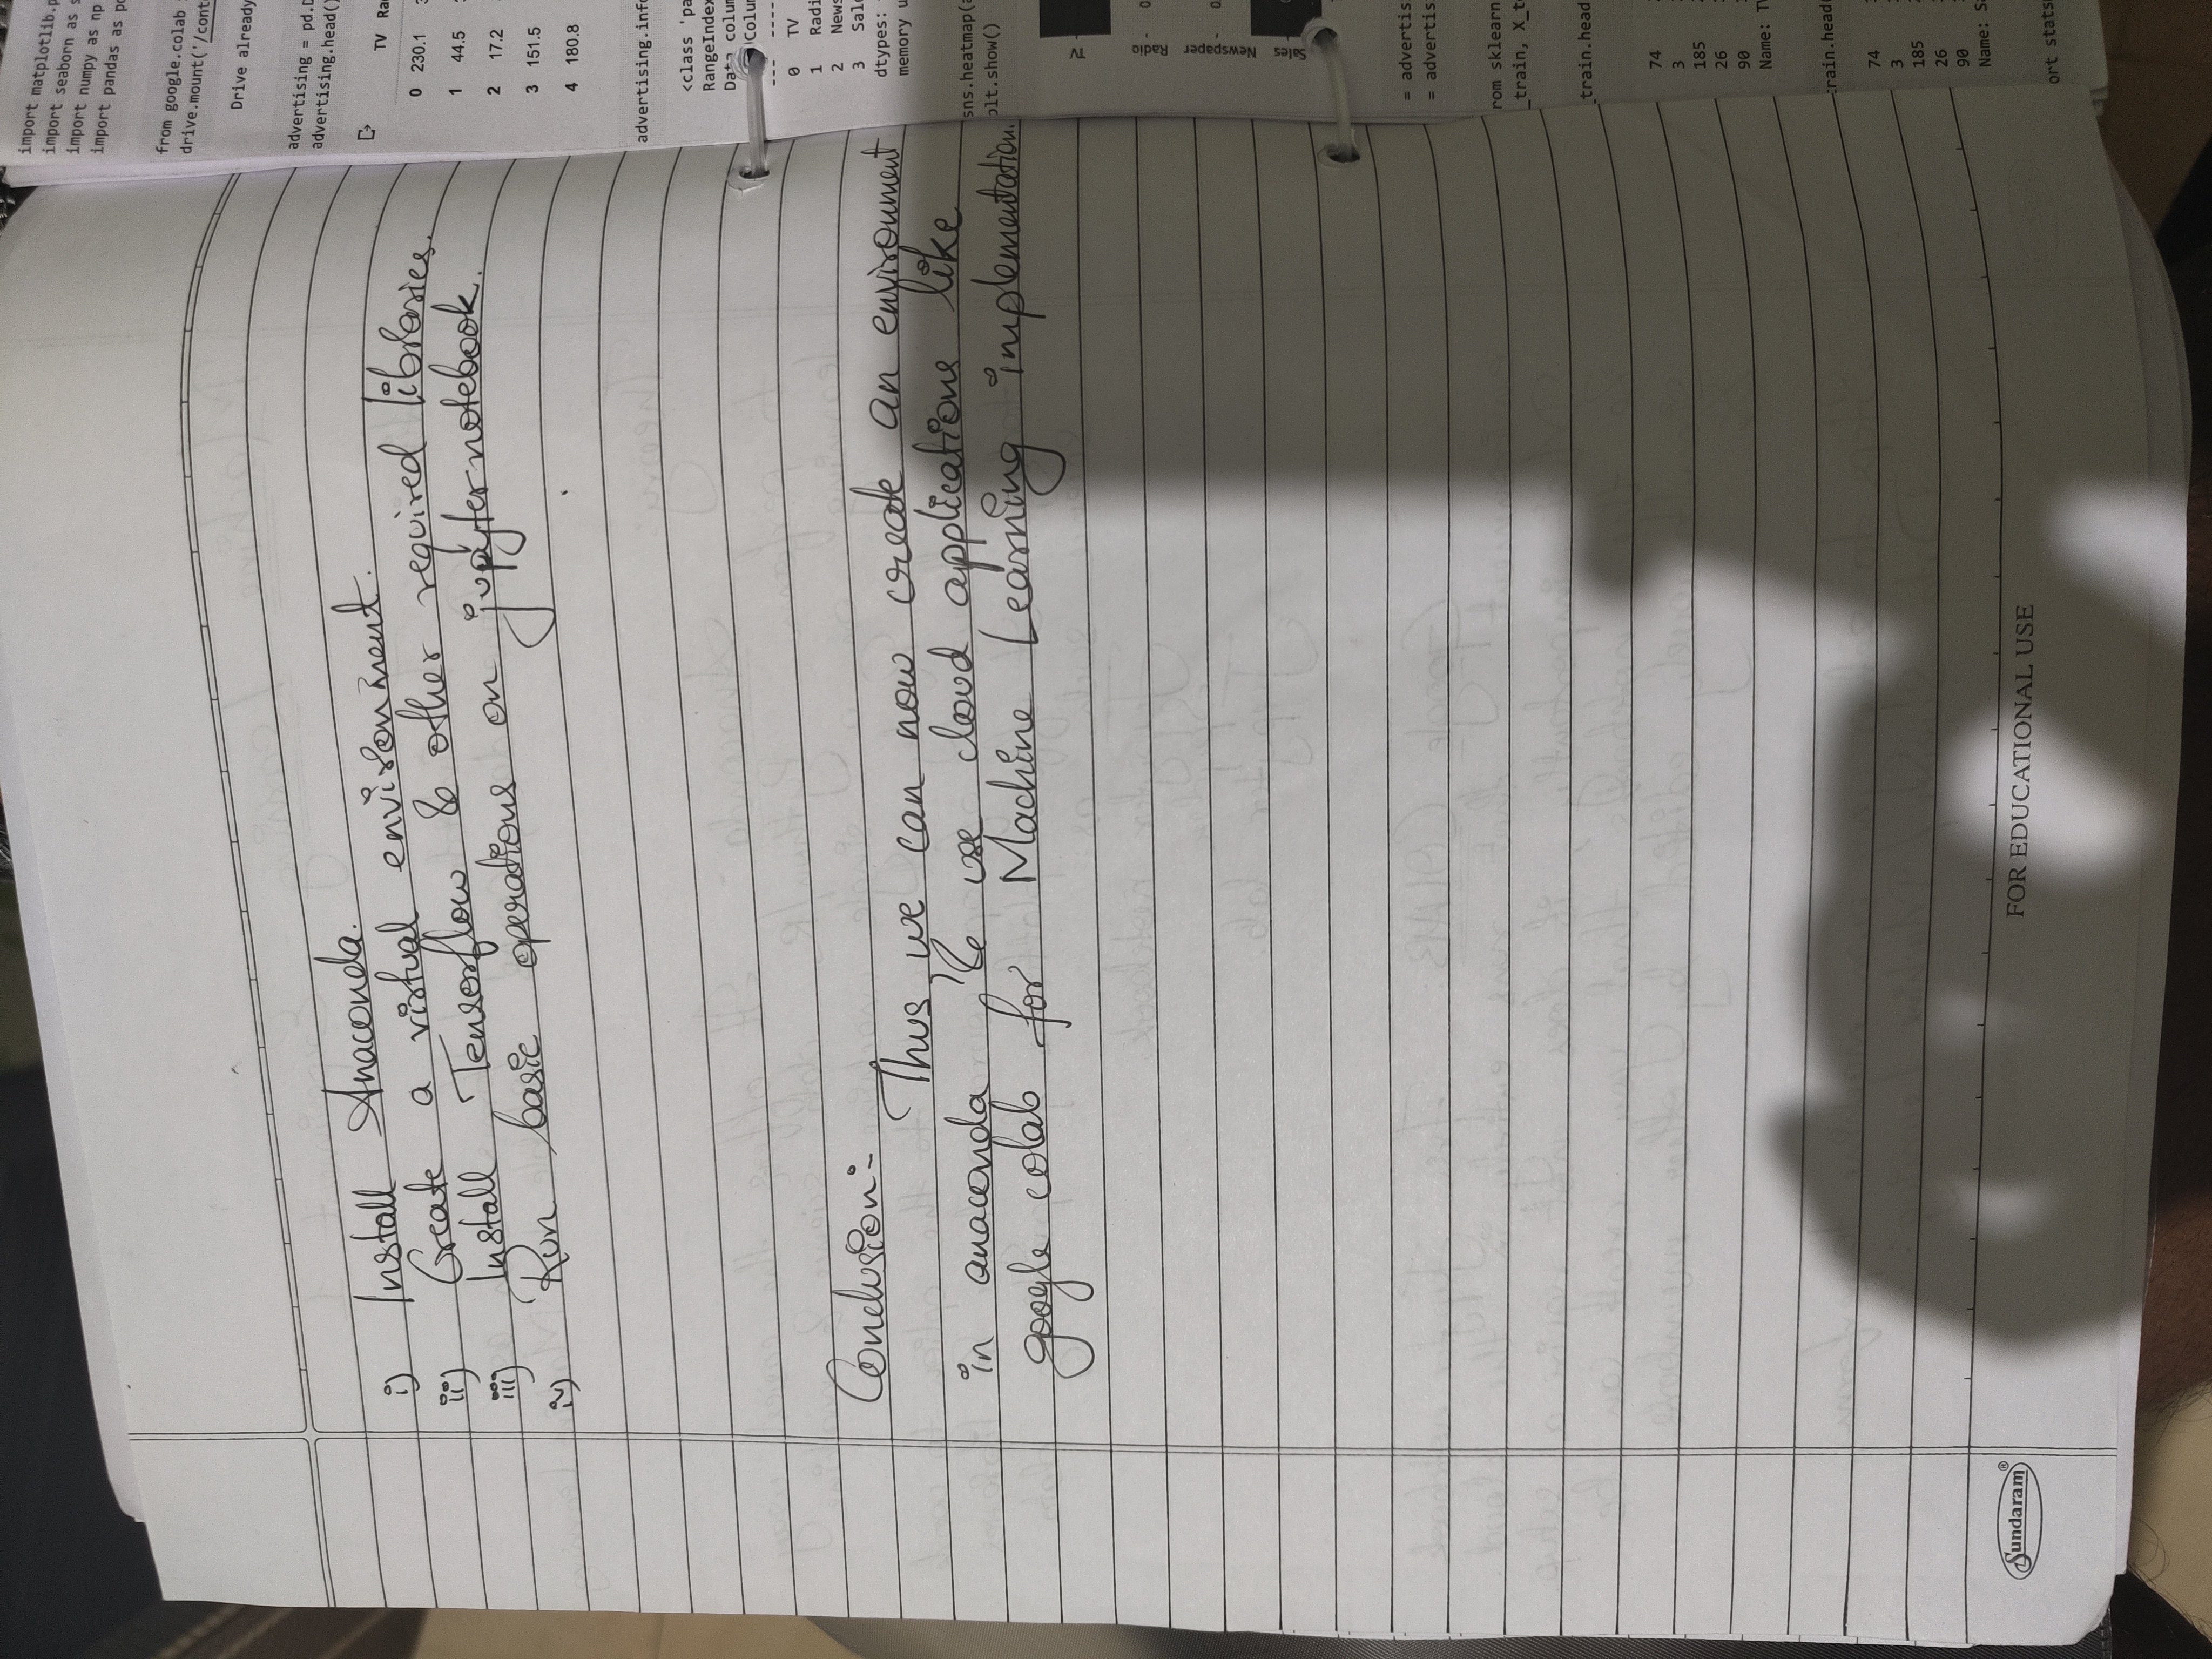 i) Install Anaconda.
ii) Create a virtual environment.
iii) Install Tensorflow & other required libraries.
iv) Run basic operations on jupyter notebook.
Conclusion:-
Thus, we can now create an environment
in anaconda & use cloud applications like
google colab for Machine Learning implementation.
Sundaram®
FOR EDUCATIONAL USE
import matplotlib.p
import seaborn as s
import numpy as np
import pandas as p
from google.colab
drive.mount('/cont
Drive already
advertising = pd.D
advertising.head()
TV Ra
0 230.1
1 44.5
2 17.2
3 151.5
4 180.8
advertising.inf
<class 'pa
RangeIndex
Data colum
Colu
--- ----
0 TV
1 Radi
2 News
3 Sal
dtypes:
memory u
sns.heatmap(
plt.show()
TV
Radio
Newspaper
Sales
= advertis
= advertis
rom sklearn
_train, X_t
_train.head
74
3
185
26
90
Name: T
train.head
74
3
185
26
90
Name: S
ort stats